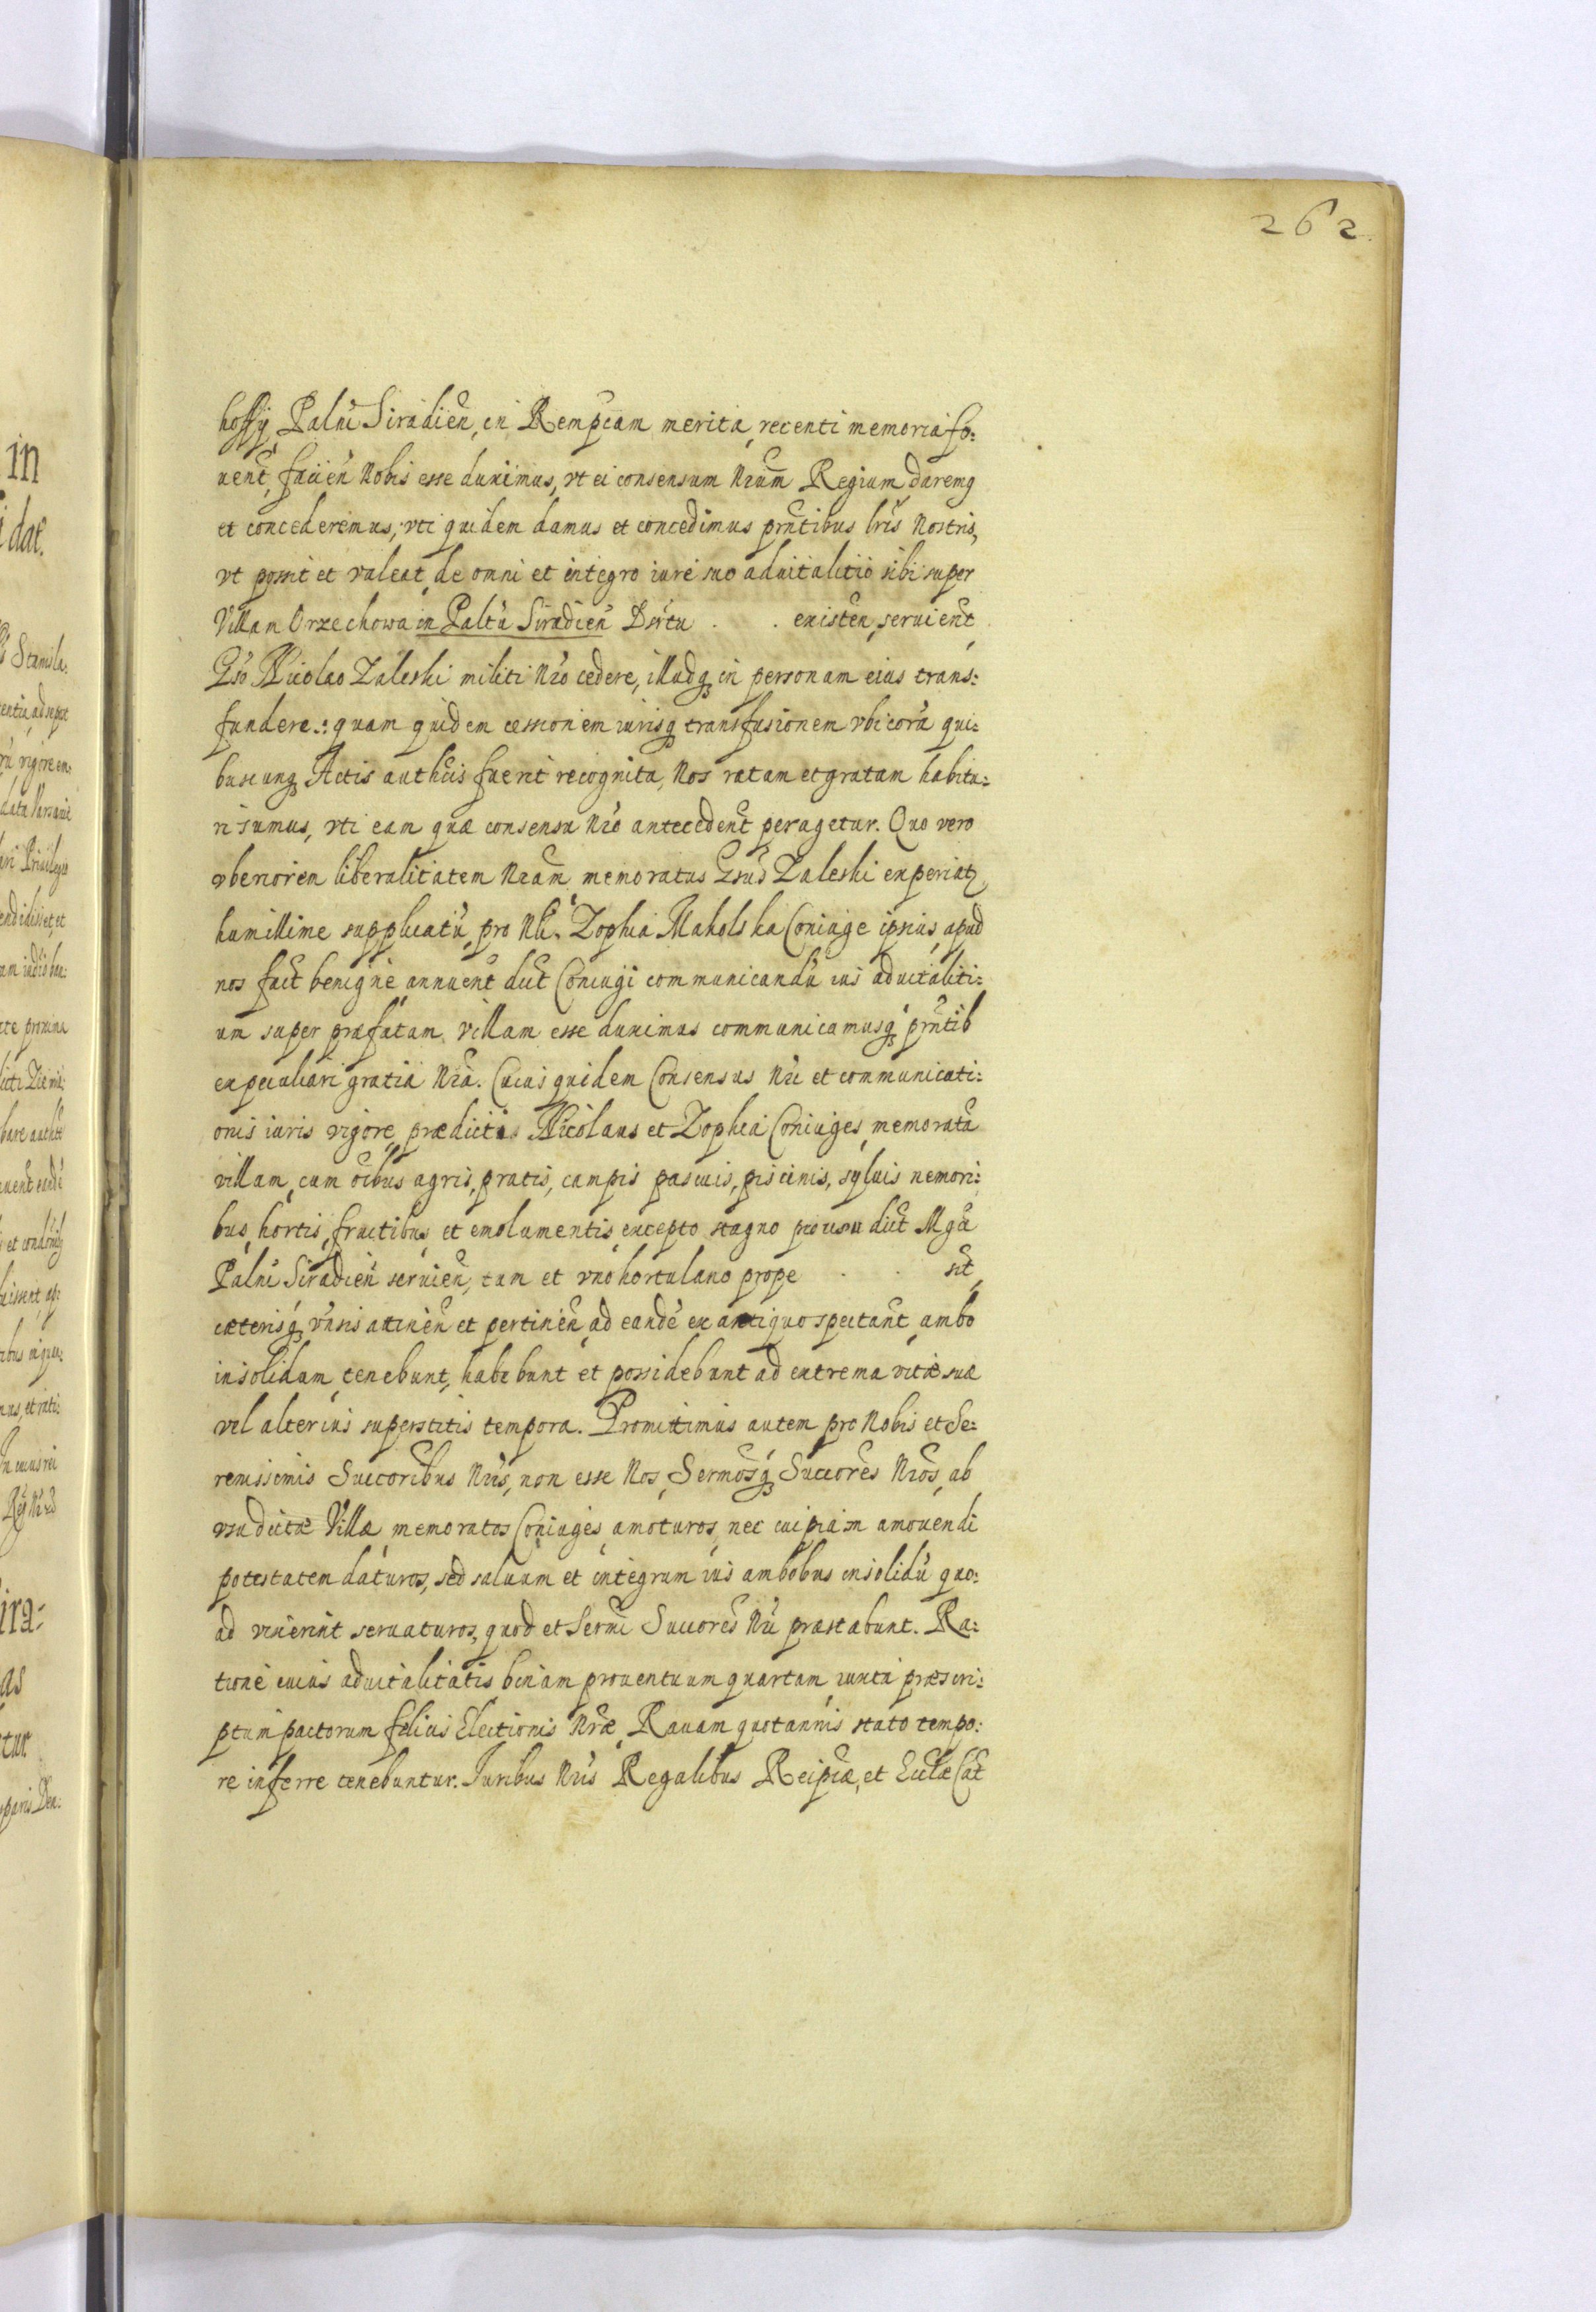 262
hoffÿ Palni Siradien, in Rempcam merita, recenti memoria fo:
uent, facien Nobis esse duximus, vt ei consensum Nrum Regium daremq
et concederemus, vti quidem damus et concedimus prntibus lris Nostris,
vt possit et valeat, de omni et integro iure suo aduitalitio sibi super
Villam Orzechowa in Paltu Siradien Dsrtu . . existen, seruient
Gso Nicolao Zaleski militi Nro cedere, illudq in personam eius trans:
fundere.: quam quidem cessionem iurisq transfusionem vbi corã qui:
buscunq Actis authcis fuerit recognita, Nos ratam et gratam habitu:
ri sumus, vti eam quæ consensu Nro antecedent peragetur. Quo vero
vberiorem liberalitatem Nram memoratus Gsus Zaleski experiat
humillime supplicatũ, pro Nli. Zophia Makolska Coniuge ipsius, apud
nos fact benignè annuent dict Coniugi communicandũ ius aduitaliti:
um super præfatam villam esse duximus communicamusq prntib
ex peculiari gratia Nra. Cuius quidem Consensus Nri et communicati:
onis iuris vigore, prædicti Nicolaus et Zophia Coniuges, memoratã
villam, cum oibus agris, pratis, campis pascuis, piscinis, syluis nemori:
bus, hortis, fructibus, et emolumentis, excepto stagno pro usu dict Mgci
Palni Siradien seruien, tam et vno hortulano prope . . sit
cæterisq vnsis attinen et pertinen, ad eandẽ ex antiquo spectant, ambo
insolidum, tenebunt, habebunt et possidebunt ad extrema vitæ suæ
vel alterius superstitis tempora. Promittimus autem pro Nobis et Se:
renissimis Succoribus Nris, non esse Nos, Sermosq Succores Nros, ab
vsu dictæ Villæ memoratos Coniuges amoturos, nec cuipiam amouendi
potestatem daturos, sed saluum et integrum ius ambobus insolidũ quo:
ad vixerint seruaturos, quod et Sermi Succores Nri præstabunt. Ra:
tione cuius aduitalitatis binam prouentuum quartam, iuxta præscri:
ptum pactorum felicis Electionis Nræ, Rauam quotannis stato tempo:
re inferre tenebuntur. Iuribus Nris Regalibus Reipcæ, et Ecclæ Cat